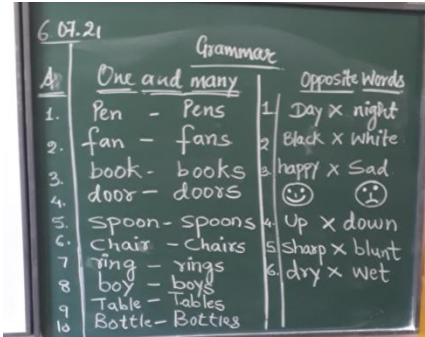 6.07.21
Grammar
A One and many
1. Pen - Pens
2. fan - fans
3. book - books
4. door - doors
5. Spoon - Spoons
6. Chair - Chairs
7 ring - rings
8 boy - boys
9 Table - Tables
10 Bottle - Bottles
Opposite Words
1 Day × night
2 Black × white
3. happy × Sad
4. Up × down
5 Sharp × blunt
6. dry × wet